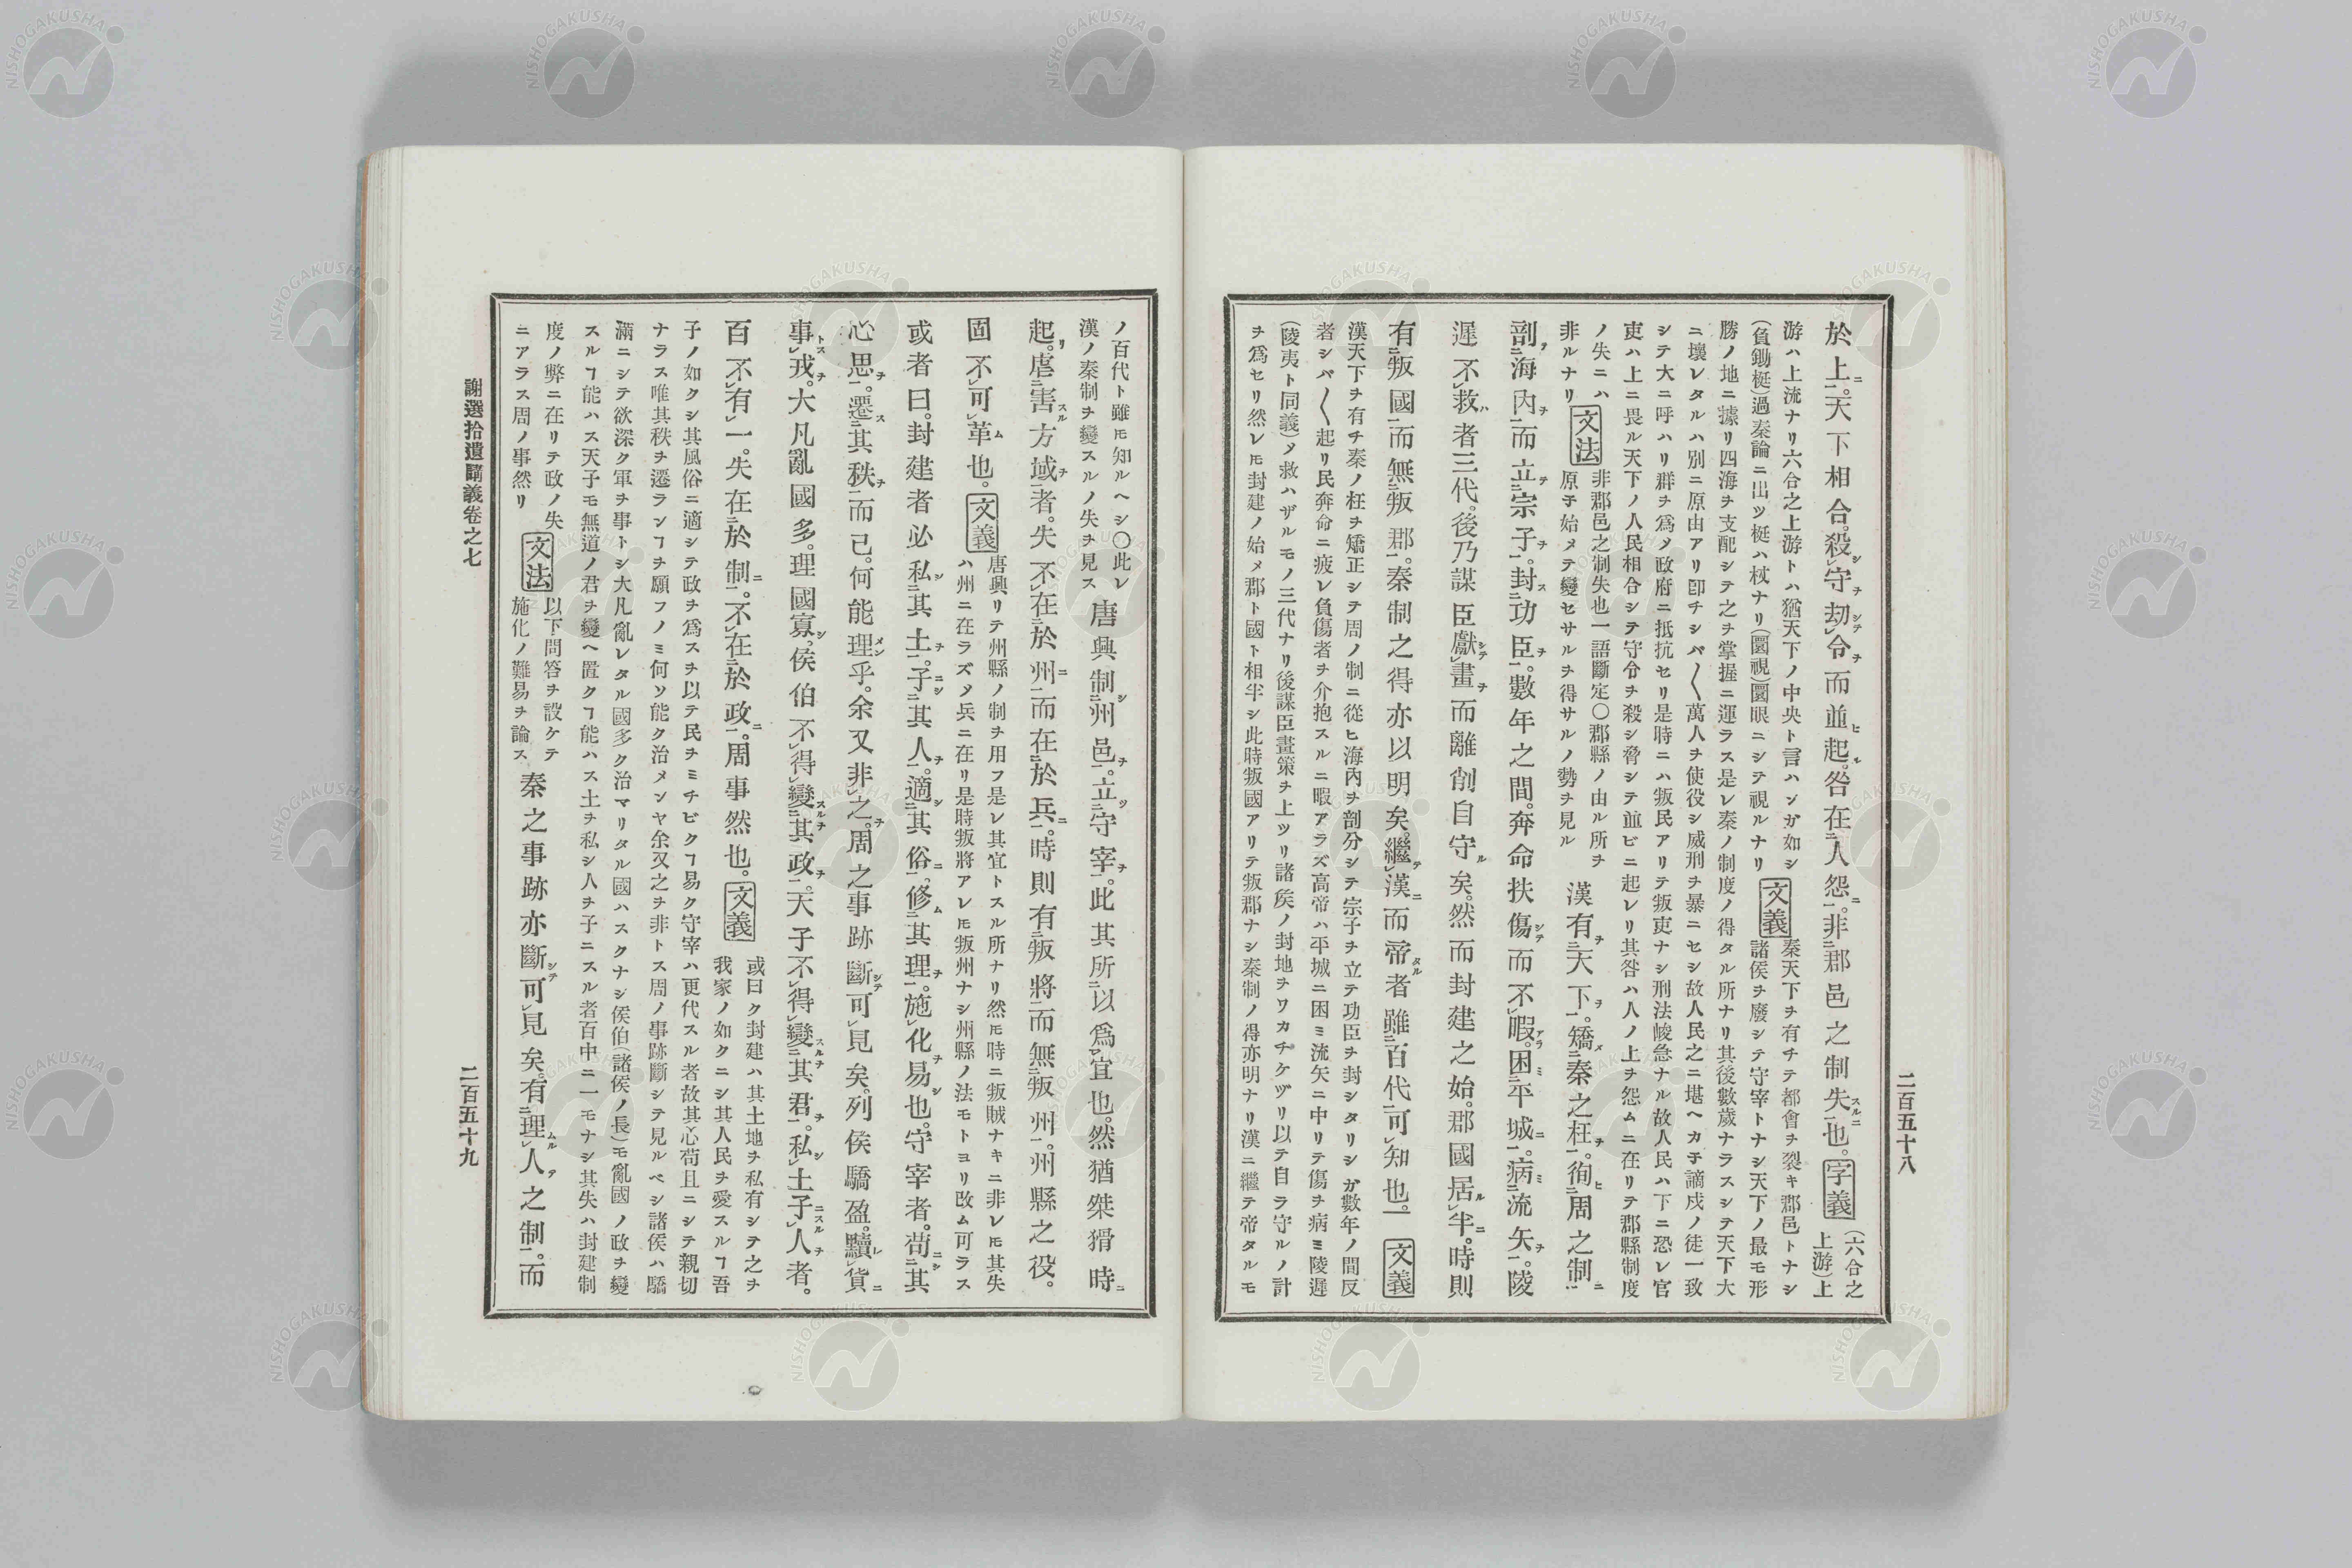 二百五十八
於上。天下相合。殺守劫令而並起。咎在人怨。非郡邑之制失也。字義(六合之
上游)上
游ハ上流ナリ六合之上游トハ猶天下ノ中央ト言ハンガ如シ
(負鋤梃)過秦論ニ出ツ梃ハ杖ナリ(圜視)圜眼ニシテ視ルナリ
文義
秦天下ヲ有チテ都會ヲ裂キ郡邑トナシ
諸侯ヲ廢シテ守宰トナシ天下ノ最モ形
勝ノ地ニ據リ四海ヲ支配シテ之ヲ掌握ニ運ラス是レ秦ノ制度ノ得タル所ナリ其後數歲ナラスシテ天下大
ニ壞レタルハ別ニ原由アリ卽チシバ〱萬人ヲ使役シ威刑ヲ暴ニセシ故人民之ニ堪ヘカ子謫戍ノ徒一致
シテ大ニ呼ハリ群ヲ爲メ政府ニ抵抗セリ是時ニハ叛民アリテ叛吏ナシ刑法峻急ナル故人民ハ下ニ恐レ官
吏ハ上ニ畏ル天下ノ人民相合シテ守令ヲ殺シ脅シテ並ビニ起レリ其咎ハ人ノ上ヲ怨ムニ在リテ郡縣制度
ノ失ニハ
非ルナリ
文法
非郡邑之制失也一語斷定〇郡縣ノ由ル所ヲ
原子始メテ變セサルヲ得サルノ勢ヲ見ル
漢有天下。矯秦之枉。徇周之制
剖海內而立宗子。封功臣。數年之間。奔命扶傷而不暇。困平城。病流矢。陵
遲不救者三代。後乃謀臣獻畫而離削自守矣。然而封建之始。郡國居半。時則
有叛國而無叛郡。秦制之得亦以明矣。繼漢而帝者雖百代可知也。文義
漢天下ヲ有チ秦ノ枉ヲ矯正シテ周ノ制ニ從ヒ海內ヲ剖分シテ宗子ヲ立テ功臣ヲ封シタリシガ數年ノ間反
者シバ〱起リ民奔命ニ疲レ負傷者ヲ介抱スルニ暇アラズ高帝ハ平城ニ困ミ流矢ニ中リテ傷ヲ病ミ陵遲
(陵夷ト同義)メ救ハザルモノ三代ナリ後謀臣畫策ヲ上ツリ諸侯ノ封地ヲワカチケヅリ以テ自ラ守ルノ計
ヲ爲セリ然レ𪜈封建ノ始メ郡ト國ト相半シ此時叛國アリテ叛郡ナシ秦制ノ得亦明ナリ漢ニ繼テ帝タルモ
ノ百代ト雖𪜈知ルヘシ〇此レ
漢ノ秦制ヲ變スルノ失ヲ見ス
唐興制州邑。立守宰。此其所以爲宜也。然猶桀猾時
起。虐害方域者。失不在於州而在於兵。時則有叛將而無叛州。州縣之役。
固不可革也。文義
唐興リテ州縣ノ制ヲ用フ是レ其宜トスル所ナリ然𪜈時ニ叛賊ナキニ非レ𪜈其失
ハ州ニ在ラズメ兵ニ在リ是時叛將アレ𪜈叛州ナシ州縣ノ法モトヨリ改ム可ラス
或者曰。封建者必私其土。子其人。適其俗。修其理。施化易也。守宰者。苟其
心思。遷其秩而已。何能理乎。余又非之。周之事跡斷可見矣。列侯驕盈。黷貨
事戎。大凡亂國多。理國寡。侯伯不得變其政。天子不得變其君。私土子人者。
百不有一。失在於制。不在於政。周事然也。文義
或曰ク封建ハ其土地ヲ私有シテ之ヲ
我家ノ如クニシ其人民ヲ愛スルヿ吾
子ノ如クシ其風俗ニ適シテ政ヲ爲スヲ以テ民ヲミチビクヿ易ク守宰ハ更代スル者故其心苟且ニシテ親切
ナラス唯其秩ヲ遷ランヿヲ願フノミ何ソ能ク治メンヤ余又之ヲ非トス周ノ事跡斷シテ見ルベシ諸侯ハ驕
滿ニシテ欲深ク軍ヲ事トシ大凡亂レタル國多ク治マリタル國ハスクナシ侯伯(諸侯ノ長)モ亂國ノ政ヲ變
スルヿ能ハス天子モ無道ノ君ヲ變ヘ置クヿ能ハス土ヲ私シ人ヲ子ニスル者百中ニ一モナシ其失ハ封建制
度ノ弊ニ在リテ政ノ失
ニアラス周ノ事然リ
文法
以下問答ヲ設ケテ
施化ノ難易ヲ論ス
秦之事跡亦斷可見矣。有理人之制。而
謝選拾遺講義卷之七
二百五十九